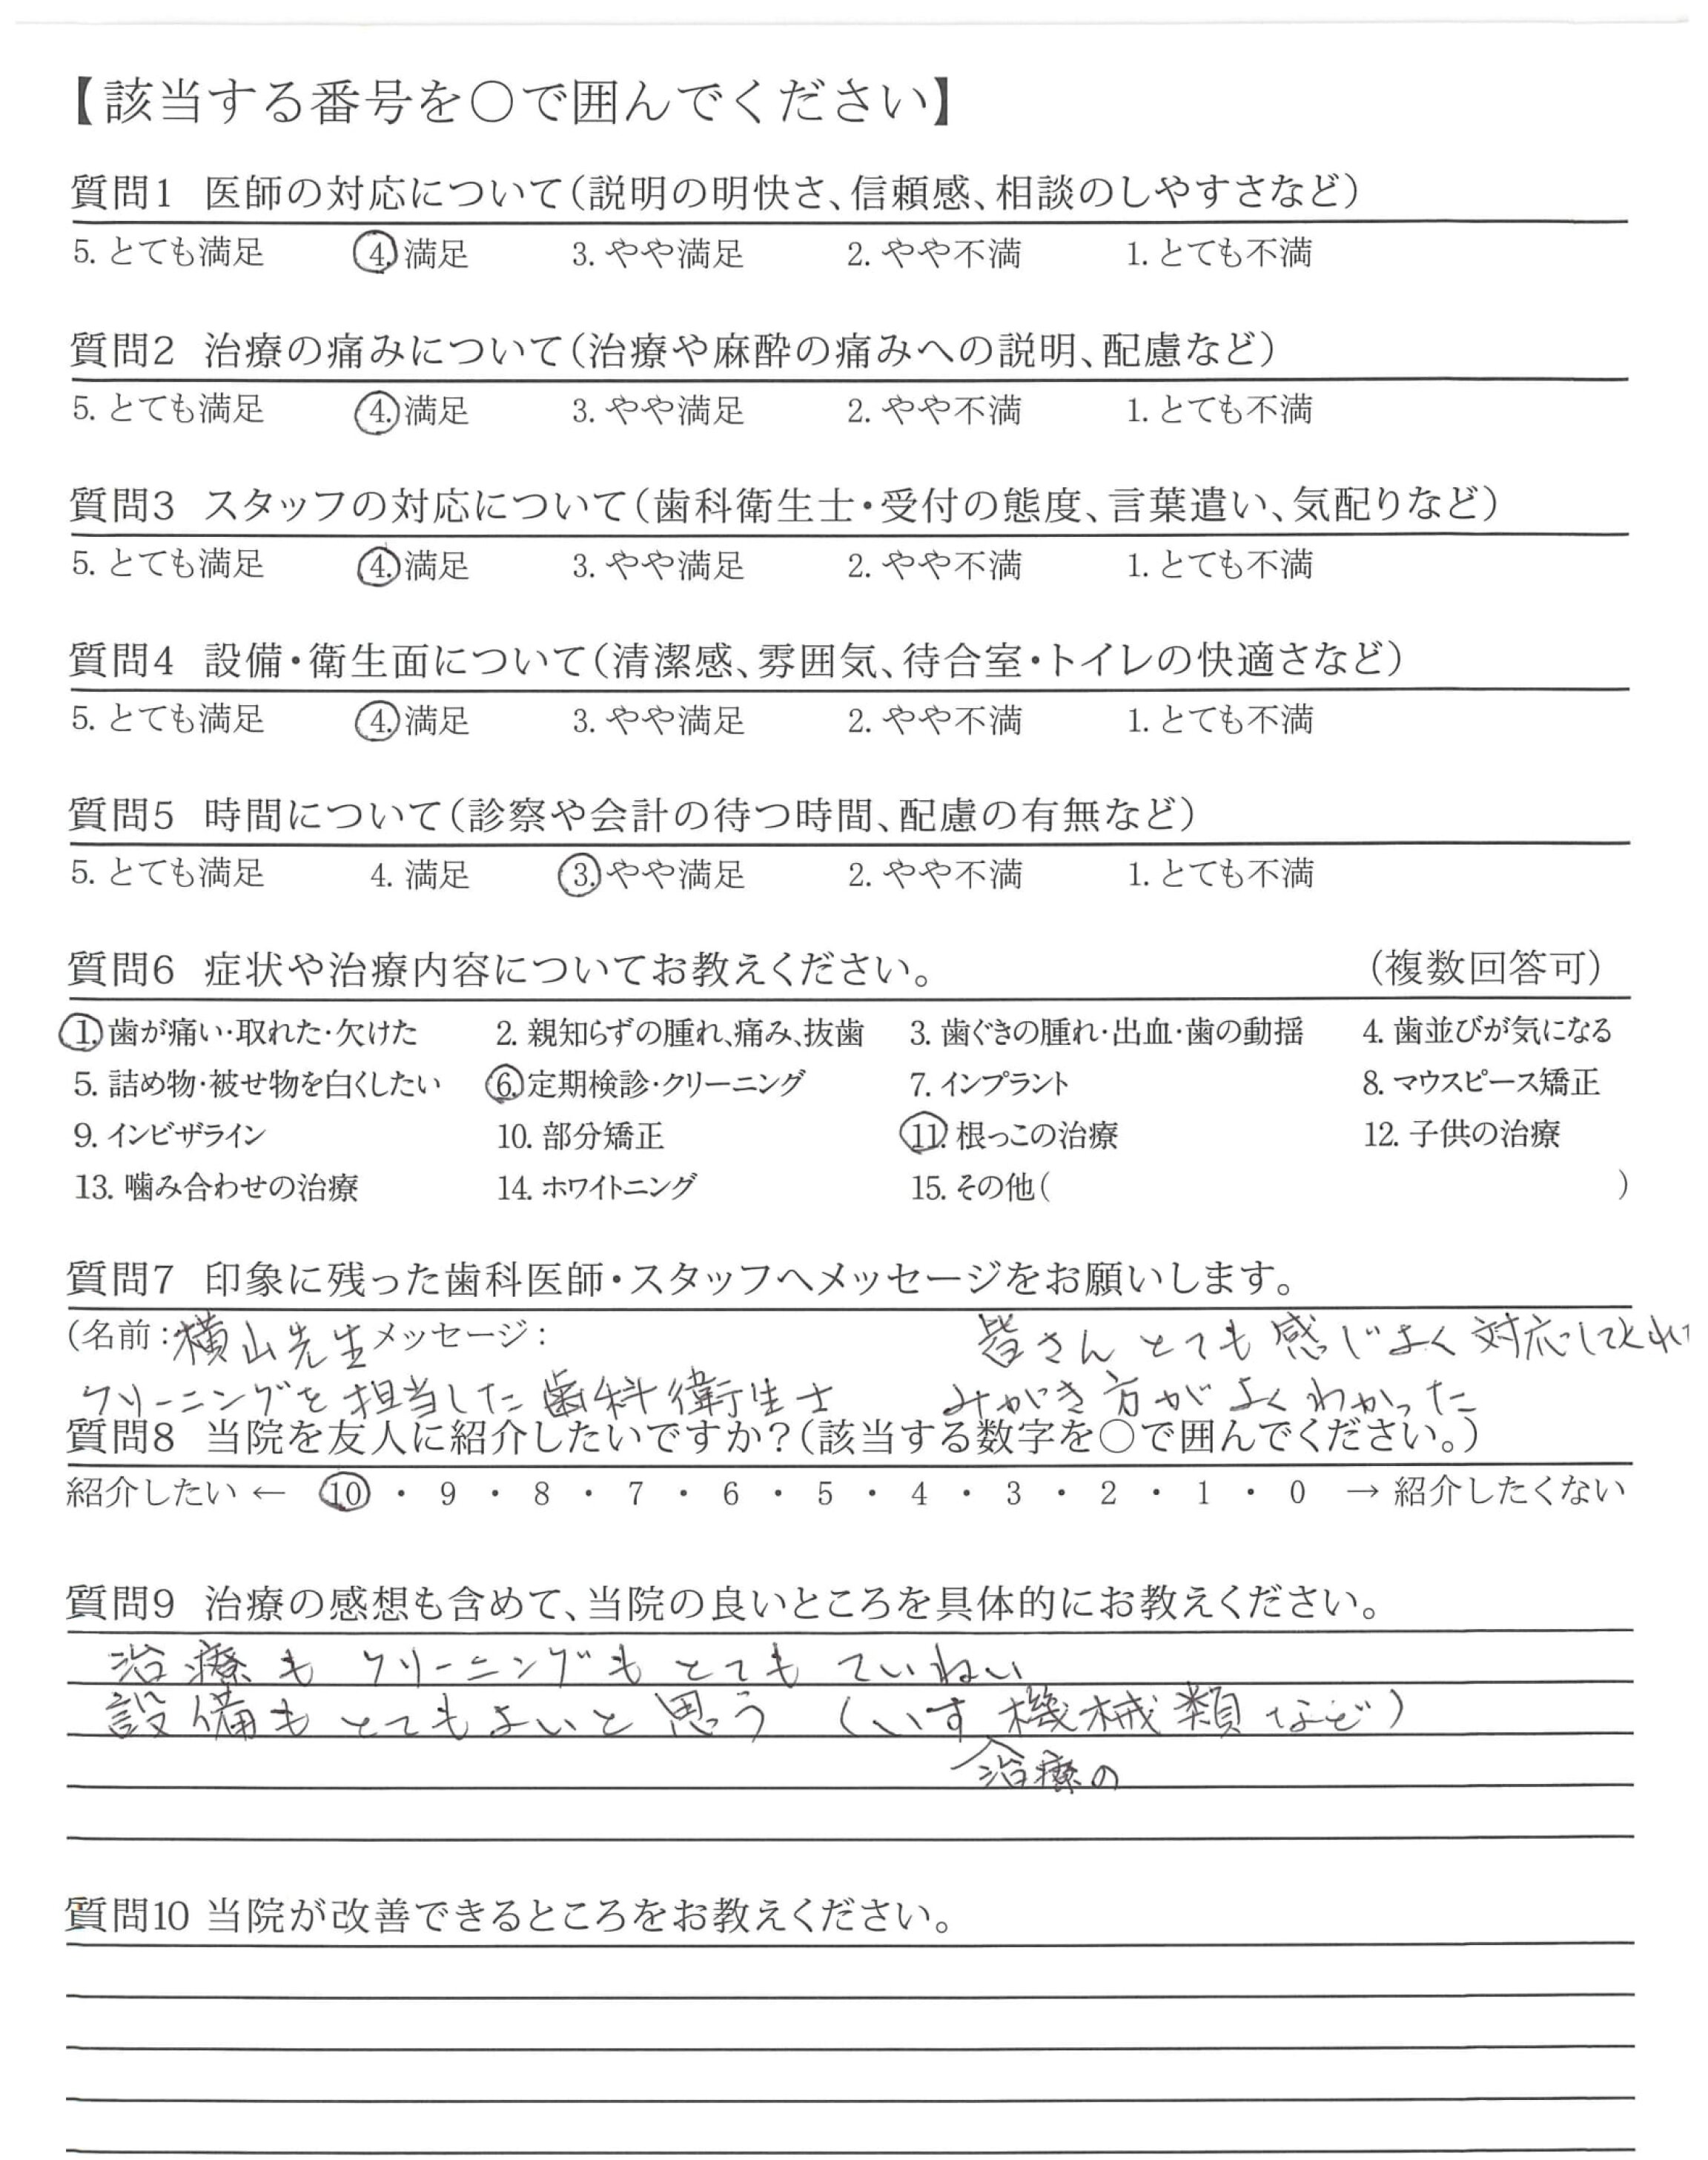 【該当する番号を○で囲んでください】
質問1 医師の対応について（説明の明快さ、信頼感、相談のしやすさなど）
5. とても満足 4. 満足 3. やや満足 2. やや不満 1. とても不満
質問2 治療の痛みについて（治療や麻酔の痛みへの説明、配慮など）
5. とても満足 4. 満足 3. やや満足 2. やや不満 1. とても不満
質問3 スタッフの対応について（歯科衛生士・受付の態度、言葉遣い、気配りなど）
5. とても満足 4. 満足 3. やや満足 2. やや不満 1. とても不満
質問4 設備・衛生面について（清潔感、雰囲気、待合室・トイレの快適さなど）
5. とても満足 4. 満足 3. やや満足 2. やや不満 1. とても不満
質問5 時間について（診察や会計の待つ時間、配慮の有無など）
5. とても満足 4. 満足 3. やや満足 2. やや不満 1. とても不満
質問6 症状や治療内容についてお教えください。 （複数回答可）
1. 歯が痛い・取れた・欠けた 2. 親知らずの腫れ、痛み、抜歯 3. 歯ぐきの腫れ・出血・歯の動揺 4. 歯並びが気になる
5. 詰め物・被せ物を白くしたい 6. 定期検診・クリーニング 7. インプラント 8. マウスピース矯正
9. インビザライン 10. 部分矯正 11. 根っこの治療 12. 子供の治療
13. 噛み合わせの治療 14. ホワイトニング 15. その他（ ）
質問7 印象に残った歯科医師・スタッフへメッセージをお願いします。
（名前：横山先生 メッセージ： 皆さんとても感じよく対応してくれ
クリーニングを担当した歯科衛生士 みがき方がよくわかった
質問8 当院を友人に紹介したいですか？（該当する数字を○で囲んでください。）
紹介したい ← 10 ・ 9 ・ 8 ・ 7 ・ 6 ・ 5 ・ 4 ・ 3 ・ 2 ・ 1 ・ 0 → 紹介したくない
質問9 治療の感想も含めて、当院の良いところを具体的にお教えください。
治療もクリーニングもとてもていねい
設備もとてもよいと思う（いす 機械類など）
治療の
質問10 当院が改善できるところをお教えください。